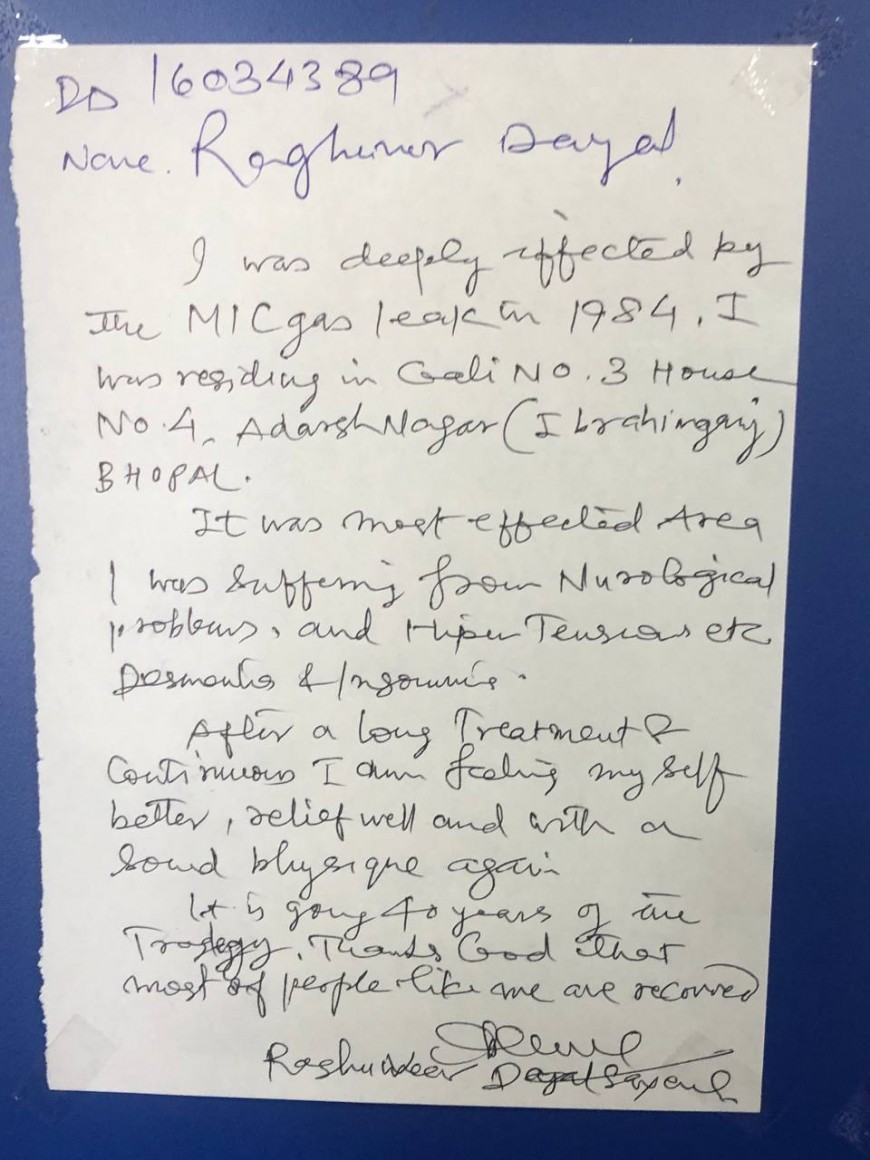 DD 16034389
Name. Raghuveer Dayal.
I was deeply effected by
the MIC gas leak in 1984. I
was residing in Gali No. 3 House
No. 4, Adarsh Nagar (Ibrahimganj)
BHOPAL.
It was most effected Area
I was suffering from Nurological
problems, and Hiper Tension etc
& Insomnia.
After a long Treatment &
Continuous I am feeling my self
better, relief well and with a
sound physique again
It is going 40 years of the
Tradegy. Thanks God that
most of people like me are recovred
Raghuveer Dayal Saxena